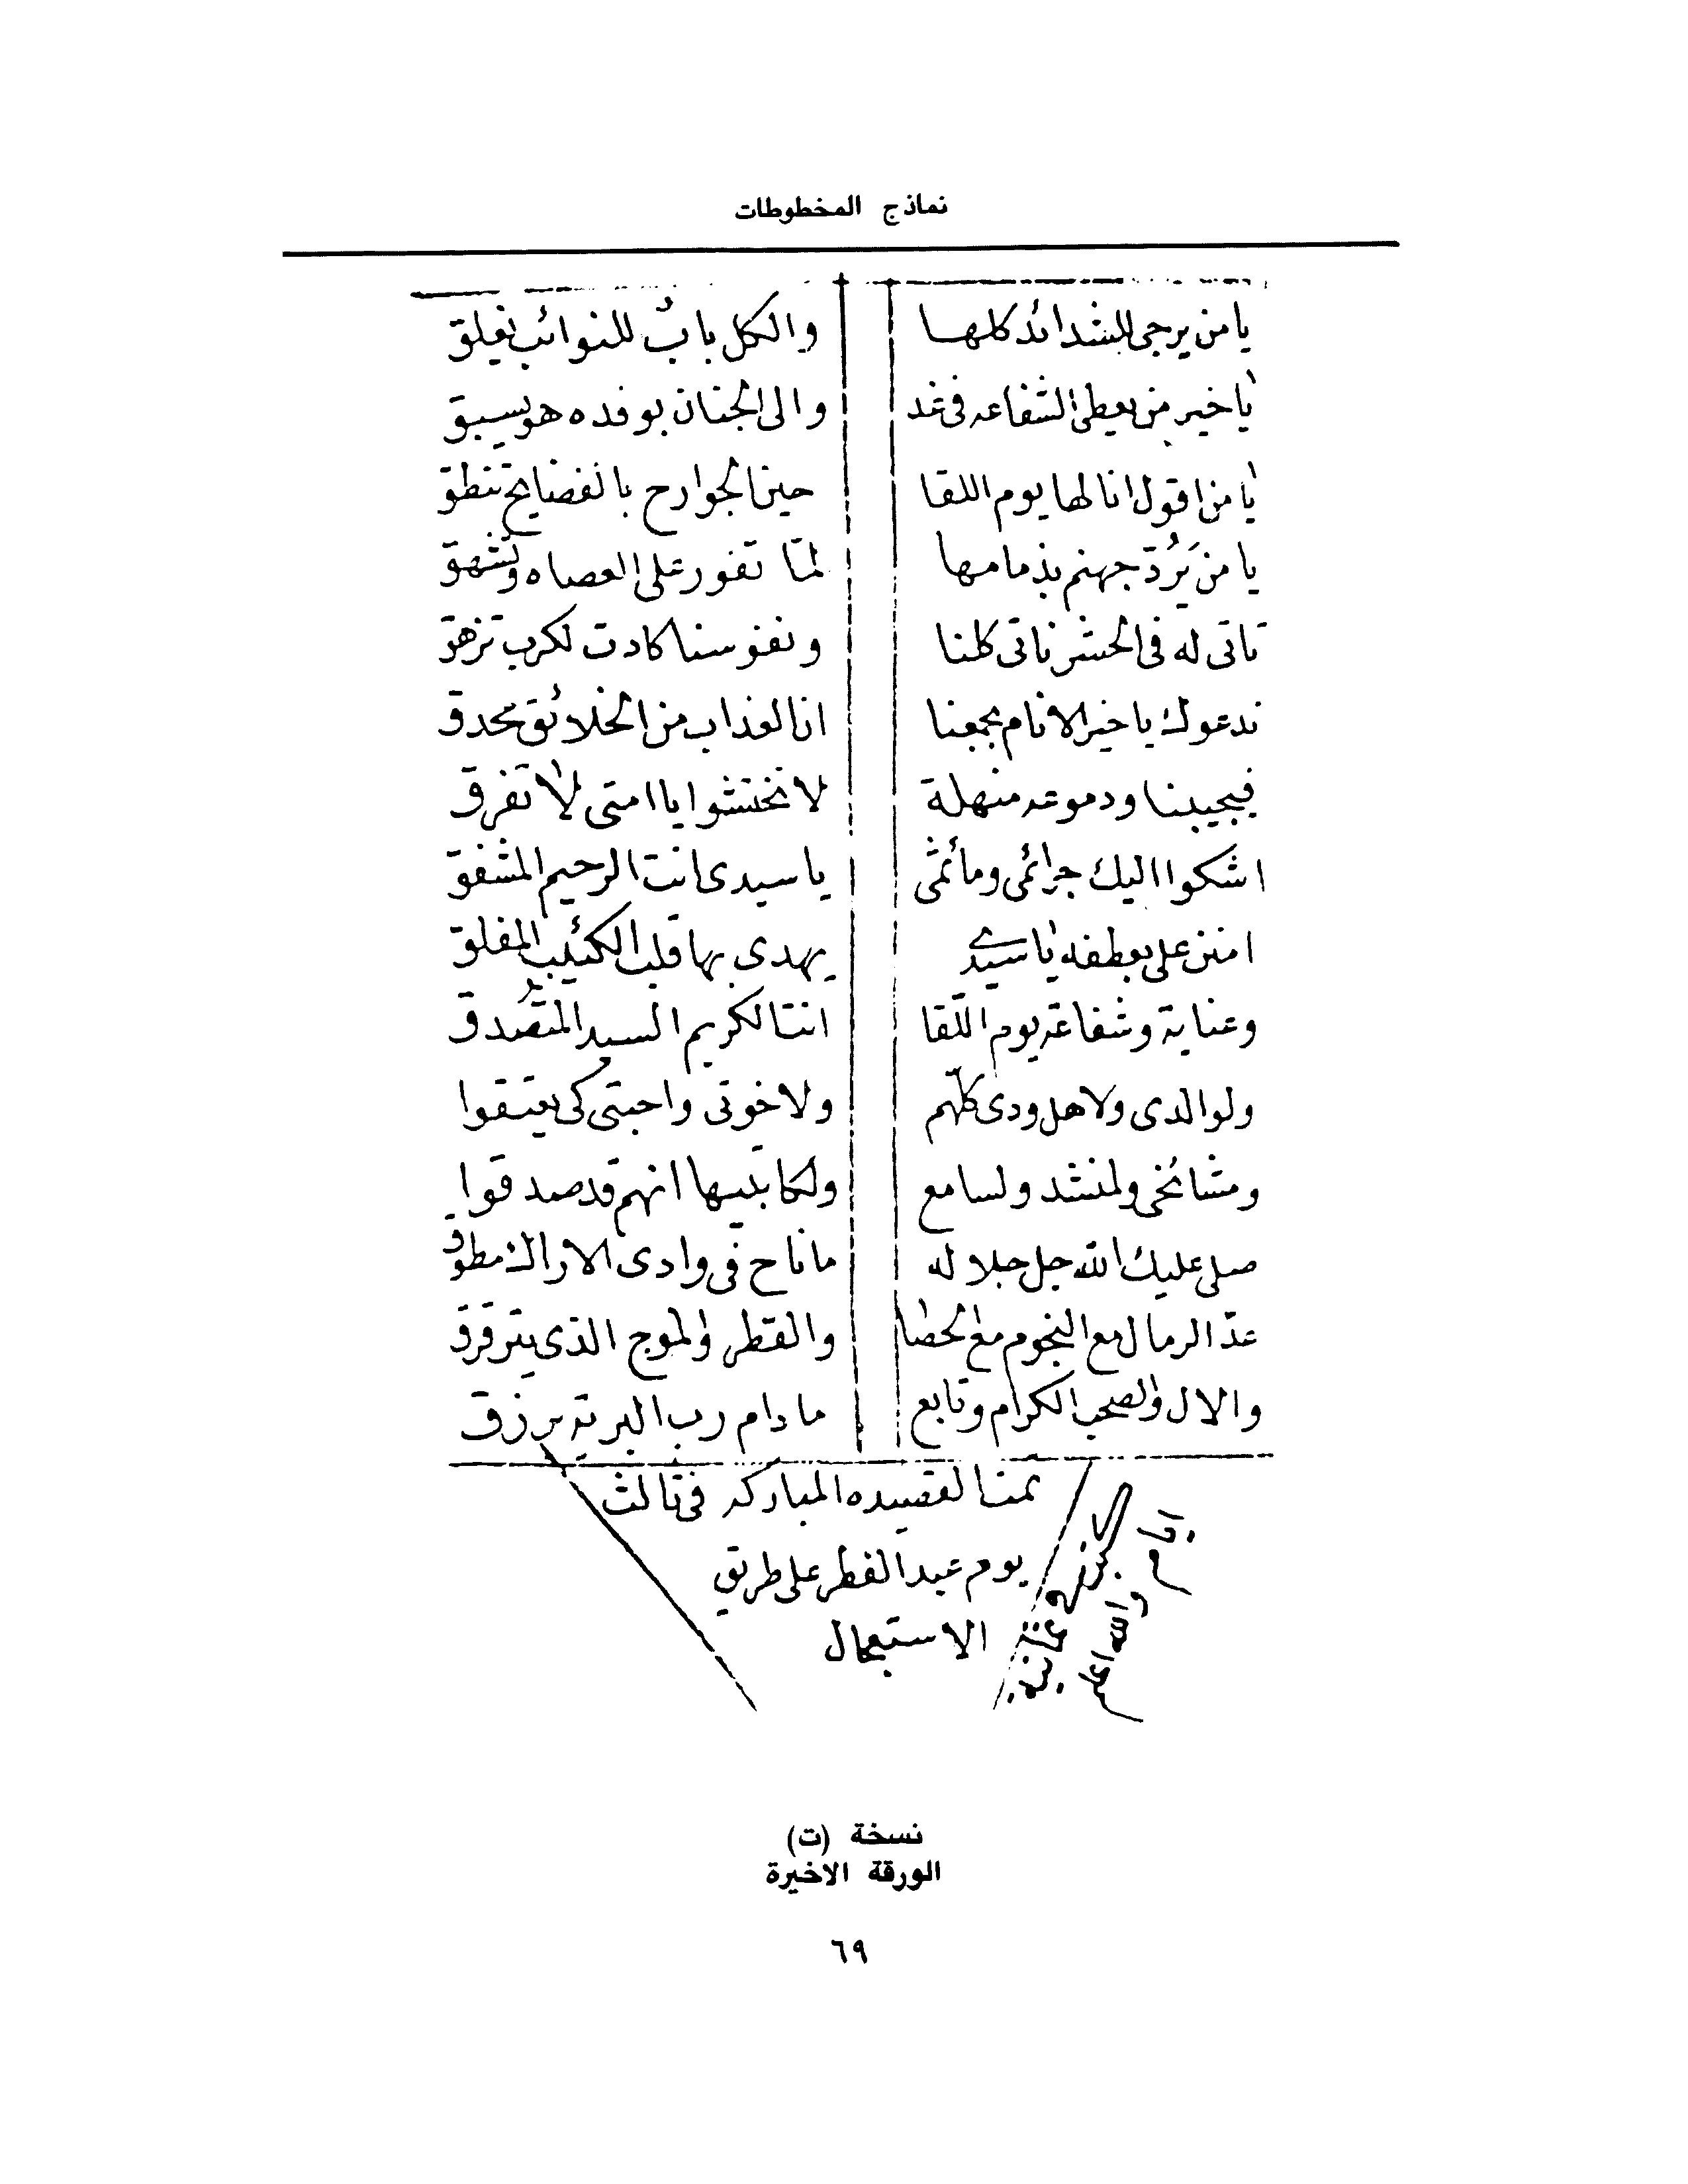 نماذج المخطوطات
يا من يرجى للشدائد كلها والكل بابٌ للنوائب يغلق
يا خير من يعطى الشفاعه فى غد والى الجنان بوفده هو يسبق
يا من اقول انا لها يوم اللقا حين الجوارح بالفضايح تنطق
يا من يَرُدّ جهنم بذمامها لمّا تفور على العصاه وتشهق
تاتى له فى الحشر ناتى كلنا ونفوسنا كادت لكرب تزهق
ندعوك يا خير الانام بجمعنا انا لعذاب من الخلائق محدق
فيجيبنا ودموعه منهلة لا تختشوا يا امتى لا تفرق
اشكوا اليك جرائمى ومأثمى يا سيدى انت الرحيم المشفق
امنن على بعطفه يا سيدي يهدى بها قلب الكئيب المقلق
وعناية وشفاعة يوم اللقا انت الكريم السيد المتصدق
ولوالدى ولاهل ودى كلهم ولاخوتى واحبتى كى يعتقوا
ومشائخى ولمنشد ولسامع ولكاتبيها انهم قد صدقوا
صلى عليك الله جل جلاله ما ناح فى وادى الاراك مطوق
عدّ الرمال مع النجوم مع الحصا والقطر والموج الذى يترقرق
والال والصحب الكرام وتابع ما دام رب البرية يرزق
تمت القصيده المباركه فى ثالث
يوم عيد الفطر على طريق
الاستعجال
والله اعلم
نسخة (ت)
الورقة الاخيرة
٦٩